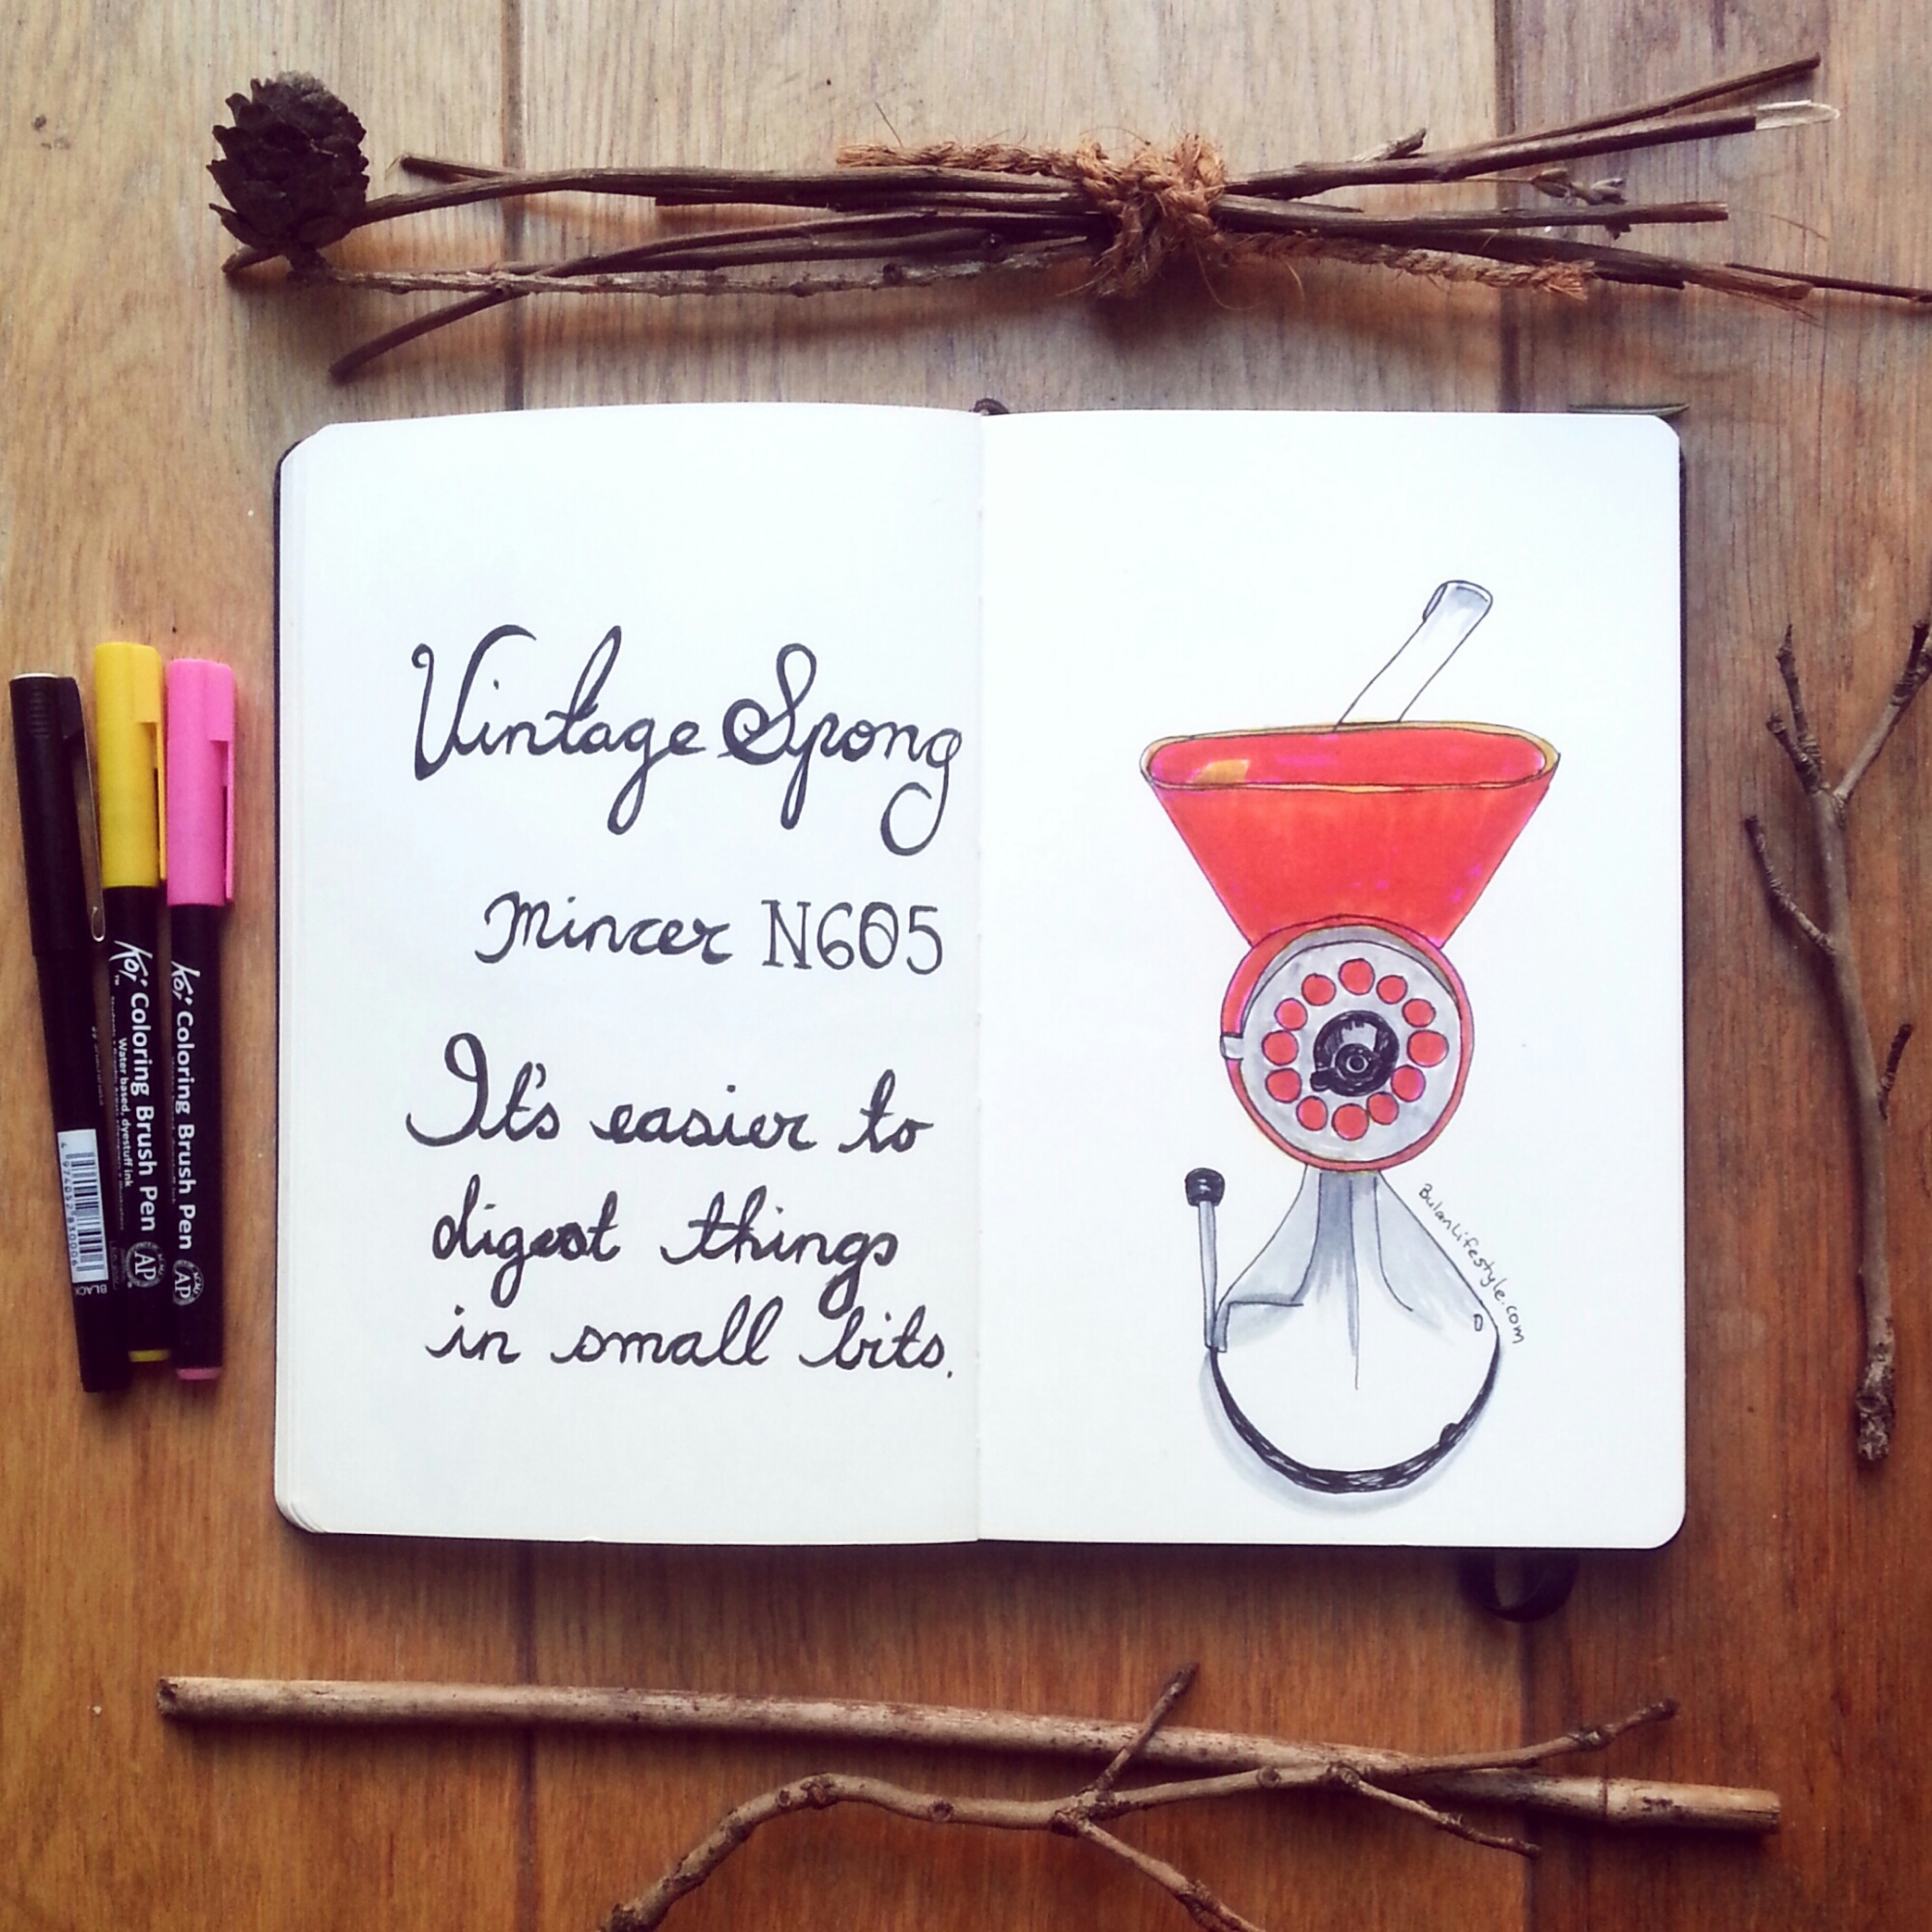 Vintage Spong
Mincer N605
It's easier to
digest things
in small bits.
BulanLifestyle.com
Koi Coloring Brush Pen
Water based, dyestuff ink
AP
Koi Coloring Brush Pen
AP
BLACK